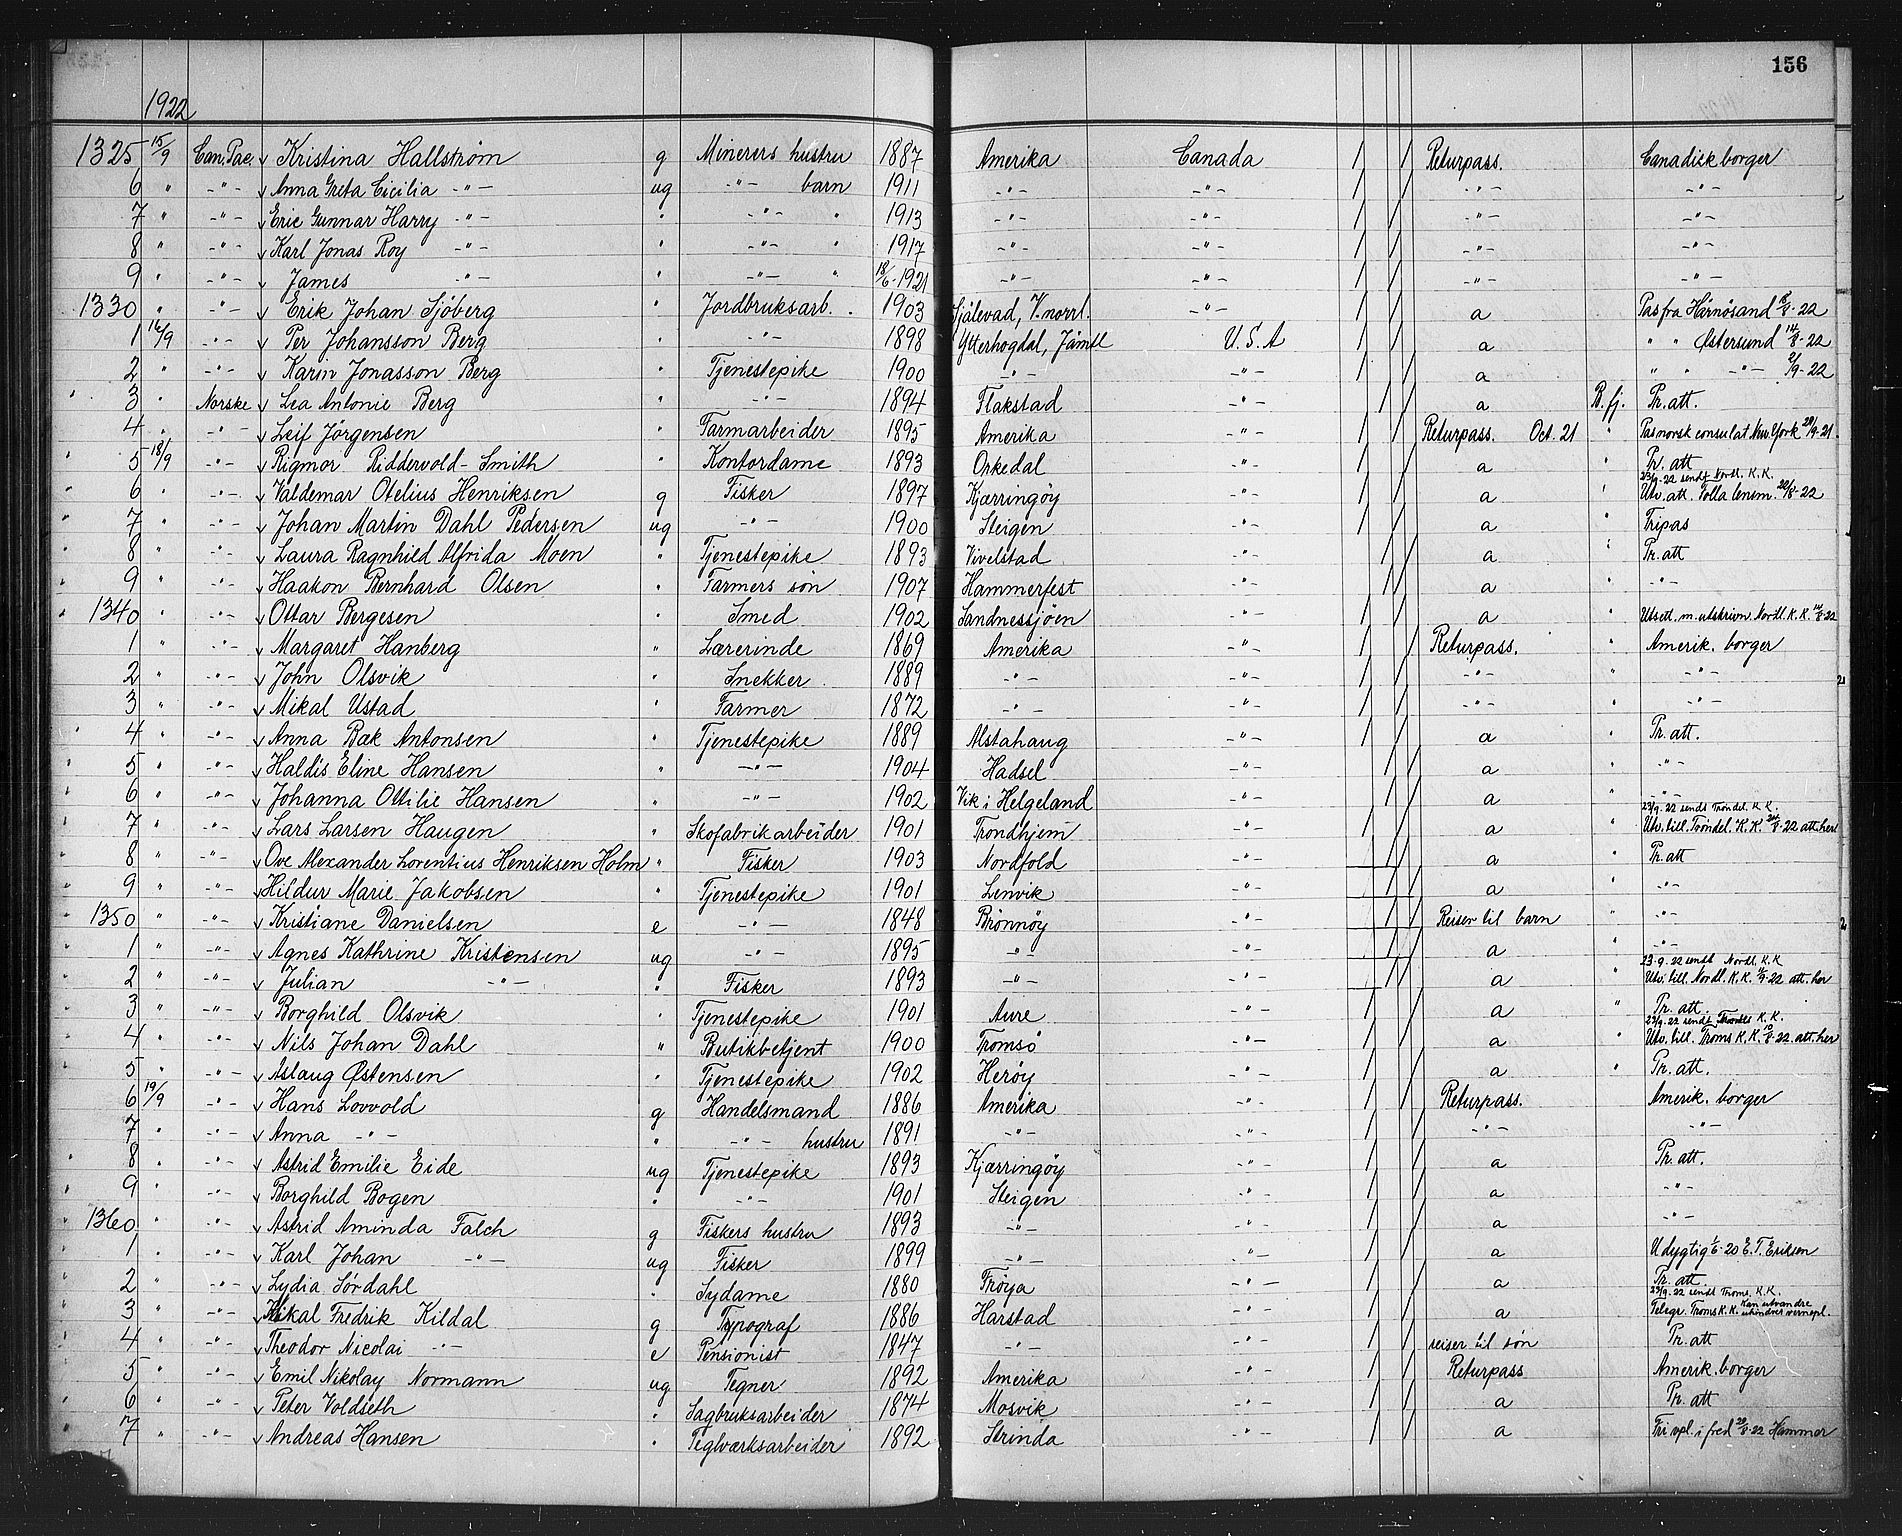 156
1922
1325 15/9 Can. Pac. Kristina Hallström g Minerers hustru 1887 Amerika Canada Returpass. Canadisk borger
6 " -"- Anna Greta Cicilia -"- ug -"- barn 1911 -"- -"- -"- -"-
7 " -"- Eric Gunnar Harry -"- " -"- " 1913 -"- -"- -"- -"-
8 " -"- Karl Jonas Roy -"- " -"- " 1917 -"- -"- -"- -"-
9 " -"- James -"- " -"- " 18/6-1921 -"- -"- -"- -"-
1330 " -"- Erik Johan Sjöberg " Jordbruksarb. 1903 Själevad, V. norrl. -"- a Pas fra Härnösand 18/8-22
1 16/9 -"- Per Johansson Berg " -"- 1898 Ytterhogdal, Jämtl U.S.A a " " Østersund 14/8-22
2 " -"- Karin Jonasson Berg " Tjenestepike 1900 -"- -"- a " " -"- 2/9-22
3 " Norske Lea Antonie Berg " -"- 1894 Flakstad -"- a B. fj. Pr. att.
4 " -"- Leif Jörgensen " Farmarbeider 1895 Amerika -"- Returpass. Oct. 21 " Pas norsk consulat New York 29/9-21
5 18/9 -"- Rigmor Riddervold-Smith " Kontordame 1893 Orkedal -"- a " Pr. att
23/9-22 sendt Nordl. K.K.
6 " -"- Valdemar Otelius Henriksen g Fisker 1897 Kjærringöy -"- a " Utv. att. Tolla lensm. 22/8-22
7 " -"- Johan Martin Dahl Pedersen ug -"- 1900 Steigen -"- a " Fripas
8 " -"- Laura Ragnhild Alfrida Moen " Tjenestepike 1893 Vivelstad -"- a " Pr. att
9 " -"- Haakon Bernhard Olsen " Farmers sön 1907 Hammerfest -"- a " -"-
1340 " -"- Ottar Bergesen " Smed 1902 Sandnessjöen -"- a " Utsett. m. utskrivn. Nordl. K.K. 14/8-22
1 " -"- Margaret Hanberg " Lærerinde 1869 Amerika -"- Returpass. " Amerik. borger
2 " -"- John Olsvik " Snekker 1889 -"- -"- -"- " -"-
3 " -"- Mikal Ustad " Farmer 1872 -"- -"- -"- " -"-
4 " -"- Anna Bak Antonsen " Tjenestepike 1889 Alstahaug -"- a " Pr. att.
5 " -"- Haldis Eline Hansen " -"- 1904 Hadsel -"- a " -"-
6 " -"- Johanna Ottilie Hansen " -"- 1902 Vik i Helgeland -"- a " -"-
23/9. 22 sendt Tröndel. K.K.
7 " -"- Lars Larsen Haugen " Skofabrikarbeider 1901 Trondhjem -"- a " Utv. till. Tröndel. K.K. 24/8-22 att. her
8 " -"- Ove Alexander Lorentius Henriksen Holm " Fisker 1903 Nordfold -"- a " Pr. att
9 " -"- Hildur Marie Jakobsen " Tjenestepike 1901 Lenvik -"- a " -"-
1350 " -"- Kristiane Danielsen e -"- 1848 Brönnöy -"- Reiser til barn " -"-
1 " -"- Agnes Kathrine Kristensen ug -"- 1895 -"- -"- a " -"-
23-9.22 sendt Nordl. K.K
2 " -"- Julian -"- " Fisker 1893 -"- -"- a " Utv. till. Nordl. K.K. 11/9-22 att. her
3 " -"- Borghild Olsvik " Tjenestepike 1901 Aure -"- a " Pr. att.
23/9. 22 sendt Troms K.K.
4 " -"- Nils Johan Dahl " Butikbetjent 1900 Tromsö -"- a " Utv. till. Troms K.K. 10/8-22. att. her
5 " -"- Aslaug Østensen " Tjenestepike 1902 Heröy -"- a " Pr. att.
6 19/9 -"- Hans Lovvold g Handelsmand 1886 Amerika -"- Returpass. Amerik. borger
7 " -"- Anna -"- " -"- hustru 1891 -"- -"- -"- -"-
8 " -"- Astrid Emilie Eide ug Tjenestepike 1893 Kjærringöy -"- a Pr. att.
9 " -"- Borghild Bogen " -"- 1901 Steigen -"- a -"-
1360 " -"- Astrid Aminda Falch g Fiskers hustru 1893 -"- -"- a -"-
1 " -"- Karl Johan -"- ug Fisker 1899 -"- -"- a Udygtig 1/6-20 E.T. Eriksen
2 " -"- Lydia Sördahl " Sydame 1880 Fröya -"- a Pr. att
23/9. 22 sendt Troms. K.K.
3 " -"- Mikal Fredrik Kildal g Typograf 1886 Harstad -"- a Telegr. Troms K.K. kan utvandre uhindret vernepl.
4 " -"- Theodor Nicolai -"- e Pensionist 1847 -"- -"- reiser til sön Pr. att
5 " -"- Emil Nikolay Normann ug Tegner 1892 Amerika -"- Returpass Amerik. borger
6 " -"- Peter Voldseth " Sagbruksarbeider 1874 Mosvik -"- a Pr. att
7 " -"- Andreas Hansen " Teglværksarbeider 1892 Strinda -"- a Fri vpl. i fred 29/8-22 Hammer